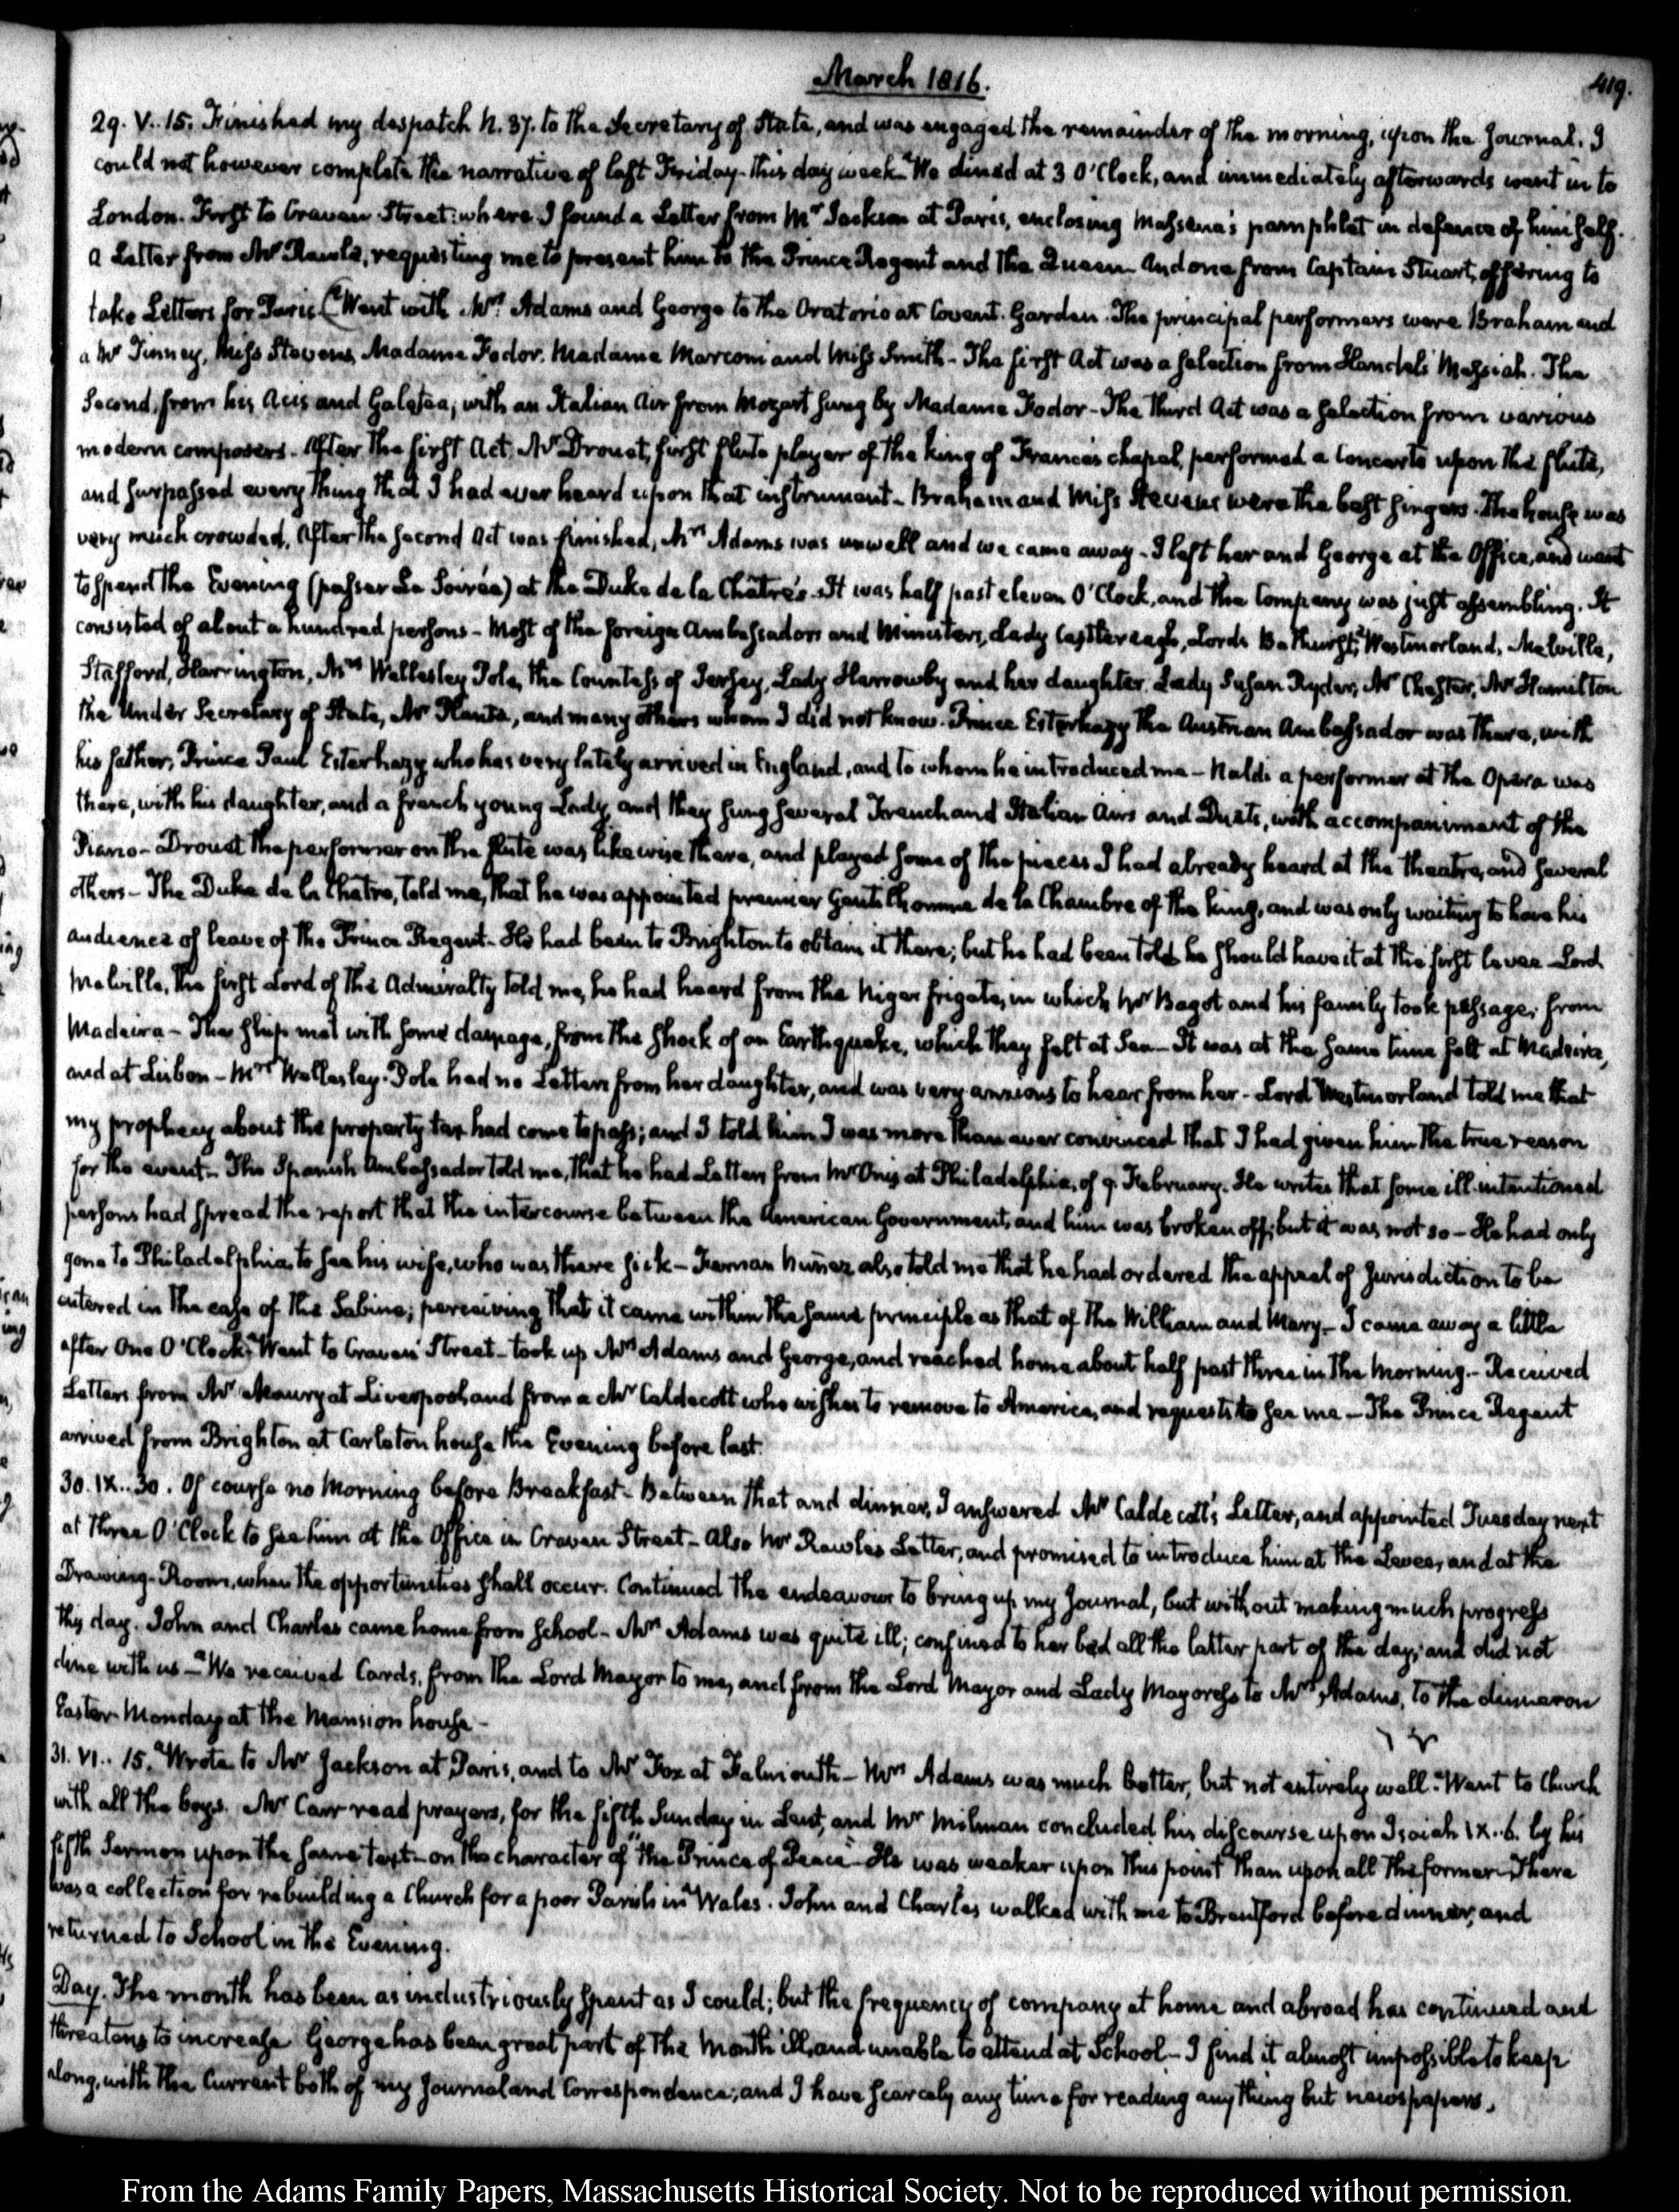 March 1816.
419.
29. V..15. Finished my despatch N. 37. to the Secretary of State, and was engaged the remainder of the morning, upon the Journal. I
could not however complete the narrative of last Friday this day week. We dined at 3 O'Clock, and immediately afterwards went in to
London. First to Craven Street: where I found a Letter from Mr Jackson at Paris, enclosing Massena's pamphlet in defence of himself.
a Letter from Mr Rawle, requesting me to present him to the Prince Regent and the Queen. And one from Captain Stuart, offering to
take Letters for Paris. Went with Mrs Adams and George to the Oratorio at Covent. Garden. The principal performers were Braham and
a Mr Tinney, Miss Stevens, Madame Fodor. Madame Marconi and Miss Smith - The first Act was a selection from Handel's Messiah. The
Second, from his Acis and Galatea, with an Italian Air from Mozart sung by Madame Fodor - The third Act was a selection from various
modern composers. After the first Act, Mr Drouet, first flute player of the king of France's chapel, performed a Concerto upon the flute,
and surpassed every thing that I had ever heard upon that instrument - Braham and Miss Stevens were the best singers. The house was
very much crowded. After the second Act was finished, Mrs Adams was unwell and we came away - I left her and George at the Office, and went
to spend the Evening (passer La Soirée) at the Duke de la Châtre's. It was half past eleven O'Clock, and the Company was just assembling. It
consisted of about a hundred persons - Most of the foreign Ambassadors and Ministers, Lady Castlereagh, Lords Bathurst, Westmorland, Melville,
Stafford, Harrington, Mrs Wellesley Pole, the Countess of Jersey, Lady Harrowby and her daughter Lady Susan Ryder, Mr Chester, Mr Hamilton
the Under Secretary of State, Mr Planta, and many others whom I did not know. Prince Esterhazy the Austrian Ambassador was there, with
his father, Prince Paul Esterhazy who has very lately arrived in England, and to whom he introduced me - Naldi a performer at the Opera was
there, with his daughter, and a french young Lady, and they sung several French and Italian Airs and Duets, with accompaniment of the
Piano - Drouet the performer on the flute was likewise there, and played some of the pieces I had already heard at the theatre, and several
others - The Duke de la Chatre, told me, that he was appointed premier Gentilhomme de la Chambre of the king, and was only waiting to have his
audience of leave of the Prince Regent. He had been to Brighton to obtain it there; but he had been told he should have it at the first levee - Lord
Melville, the first Lord of the Admiralty told me, he had heard from the Niger frigate, in which Mr Bagot and his family took passage, from
Madeira - The ship met with some damage, from the shock of an Earthquake, which they felt at Sea - It was at the same time felt at Madeira,
and at Lisbon - Mrs Wellesley-Pole had no Letters from her daughter, and was very anxious to hear from her - Lord Westmorland told me that
my prophecy about the property tax had come to pass; and I told him I was more than ever convinced that I had given him the true reason
for the event - The Spanish Ambassador told me, that he had Letters from Mr Onis at Philadelphia, of 9. February. He writes that some ill intentioned
persons had spread the report that the intercourse between the American Government, and him was broken off; but it was not so - He had only
gone to Philadelphia, to see his wife, who was there sick - Fernan Nuñez also told me that he had ordered the appeal of Jurisdiction to be
entered in the case of the Sabine; perceiving that it came within the same principle as that of the William and Mary - I came away a little
after One O'Clock. Went to Craven Street - took up Mrs Adams and George, and reached home about half past three in the Morning. - Received
Letters from Mr Maury at Liverpool and from a Mr Caldecott who wishes to remove to America, and requests to see me - The Prince Regent
arrived from Brighton at Carleton house the Evening before last.
30. IX..30. Of course no Morning before Breakfast - Between that and dinner, I answered Mr Caldecott's Letter, and appointed Tuesday next
at three O'Clock to see him at the Office in Craven Street - Also Mr Rawle's Letter, and promised to introduce him at the Levee, and at the
Drawing-Room, when the opportunities shall occur. Continued the endeavour to bring up my Journal, but without making much progress
this day. John and Charles came home from School - Mrs Adams was quite ill; confined to her bed all the latter part of the day, and did not
dine with us - We received Cards, from the Lord Mayor to me, and from the Lord Mayor and Lady Mayoress to Mrs Adams, to the dinner on
Easter-Monday at the Mansion house -
31. VI..15. Wrote to Mr Jackson at Paris, and to Mr Fox at Falmouth - Mrs Adams was much better, but not entirely well. Went to Church
with all the boys. Mr Carr read prayers, for the fifth Sunday in Lent, and Mr Milman concluded his discourse upon Isaiah IX..6. by his
fifth Sermon upon the same text - on the character of "the Prince of Peace" He was weaker upon this point than upon all the former - There
was a collection for rebuilding a Church for a poor Parish in Wales. John and Charles walked with me to Brentford before dinner, and
returned to School in the Evening.
Day. The month has been as industriously spent as I could; but the frequency of company at home and abroad has continued and
threatens to increase George has been great part of the Month ill, and unable to attend at School - I find it almost impossible to keep
along, with the Current both of my Journal and Correspondence; and I have scarcely any time for reading any thing but newspapers.
From the Adams Family Papers, Massachusetts Historical Society. Not to be reproduced without permission.